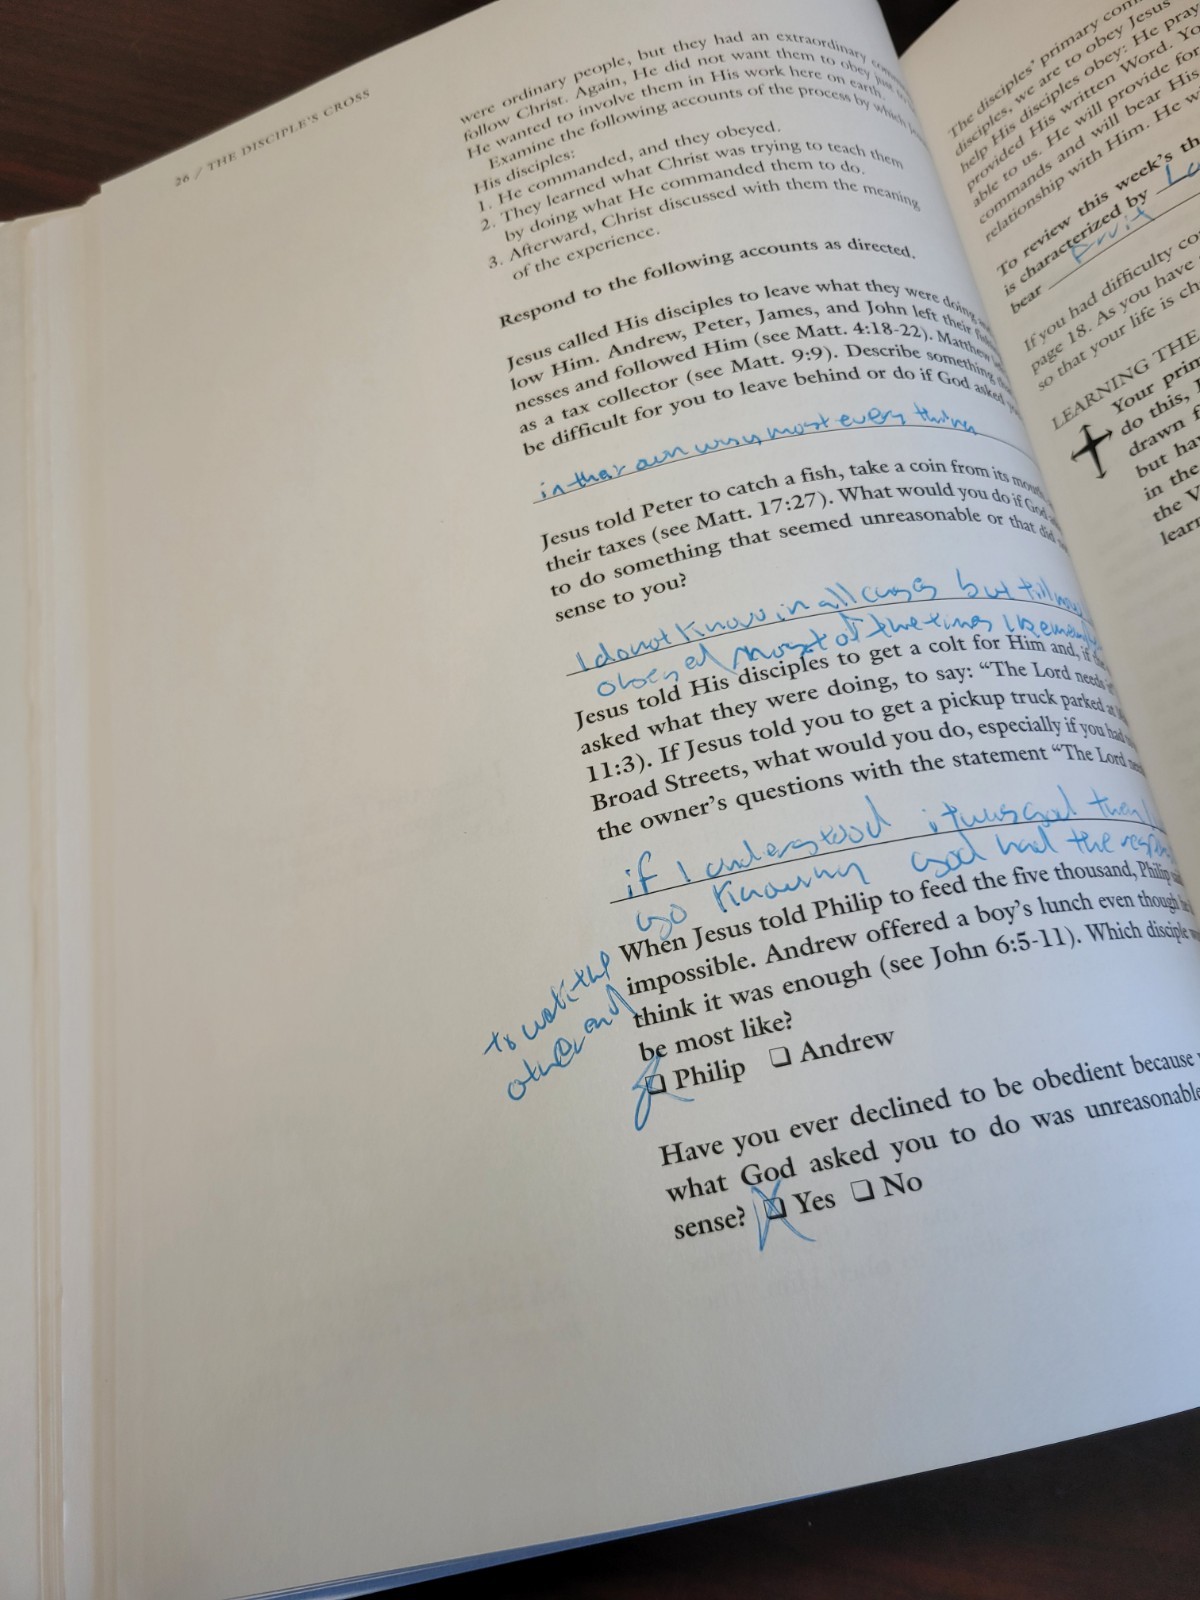 26 / THE DISCIPLE'S CROSS
were ordinary people, but they had an extraordinary
follow Christ. Again, He did not want them to obey just to
He wanted to involve them in His work here on earth.
Examine the following accounts of the process by which
His disciples:
1. He commanded, and they obeyed.
2. They learned what Christ was trying to teach them
by doing what He commanded them to do.
3. Afterward, Christ discussed with them the meaning
of the experience.
Respond to the following accounts as directed.
Jesus called His disciples to leave what they were doing
low Him. Andrew, Peter, James, and John left their
nesses and followed Him (see Matt. 4:18-22). Matthew
as a tax collector (see Matt. 9:9). Describe something
be difficult for you to leave behind or do if God asked
in their own way most every thing
Jesus told Peter to catch a fish, take a coin from its
their taxes (see Matt. 17:27). What would you do if God
to do something that seemed unreasonable or that did
sense to you?
I do not know in all cases but till now
obeyed most of the times I
Jesus told His disciples to get a colt for Him and, if
asked what they were doing, to say: "The Lord needs
11:3). If Jesus told you to get a pickup truck parked at
Broad Streets, what would you do, especially if you had
the owner's questions with the statement "The Lord
if I understood it was God then I
go knowing God had the
to
other end
When Jesus told Philip to feed the five thousand, Philip
impossible. Andrew offered a boy's lunch even though
think it was enough (see John 6:5-11). Which disciple
be most like?
❑ Philip ❑ Andrew
Have you ever declined to be obedient because
what God asked you to do was unreasonable
sense? ❑ Yes ❑ No
The disciples' primary
disciples, we are to obey Jesus
help His disciples obey: He
provided His written Word.
able to us. He will provide for
commands and will bear His
relationship with Him. He
To review this week's
is characterized by
bear fruit
If you had difficulty
page 18. As you have
so that your life is
LEARNING THE
Your
do this,
drawn
but
in the
the